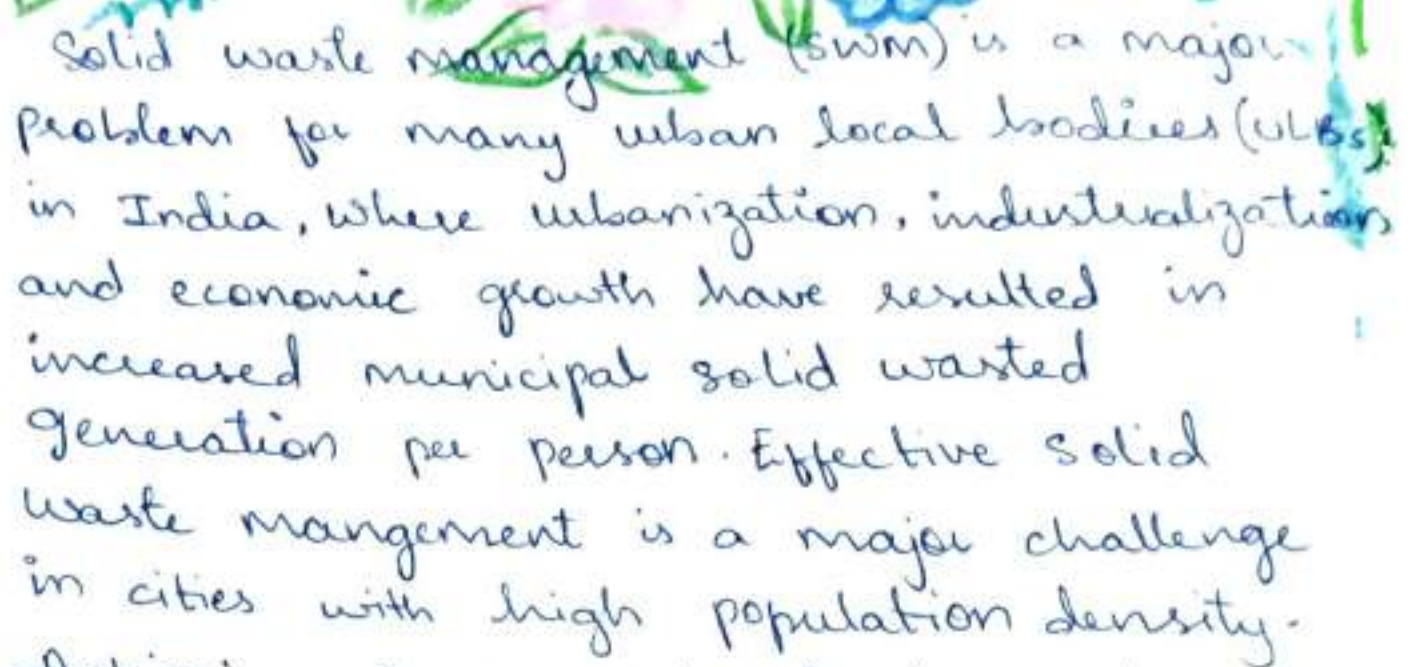 Solid waste management (SWM) is a major
problem for many urban local bodies (ULBs)
in India, where urbanization, industrialization
and economic growth have resulted in
increased municipal solid wasted
generation per person. Effective Solid
waste mangement is a major challenge
in cities with high population density.